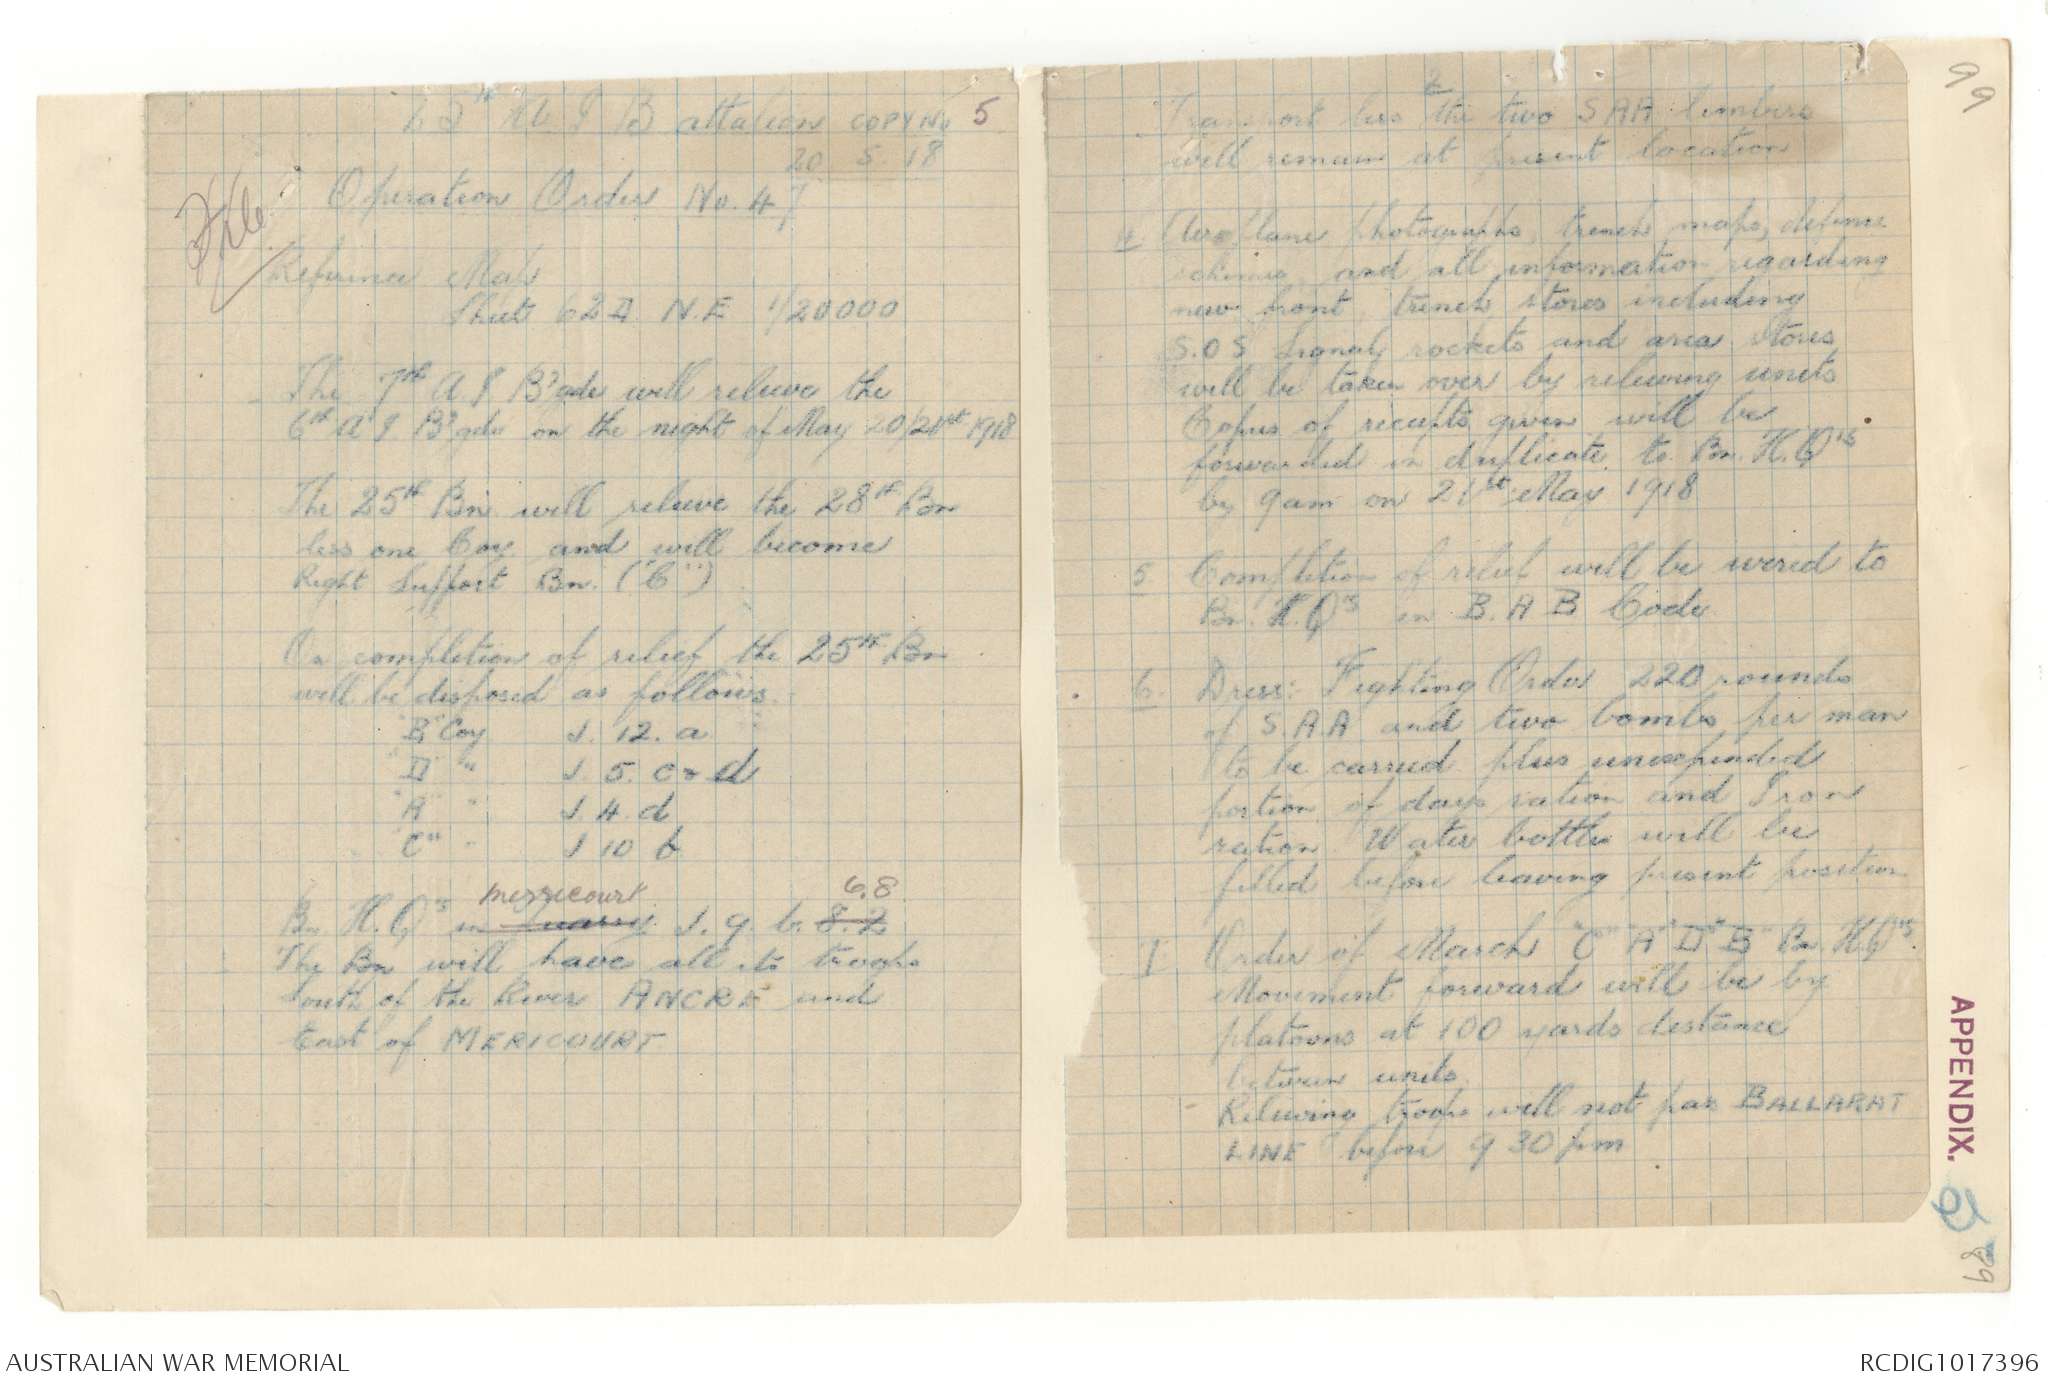 25th A I Battalion COPY No 5
20. 5. 18
File
Operation Order No. 47
Reference Map
Sheet 62D N.E 1/20000
The 7th A I B'gde will relieve the
6th A I B'gde on the night of May 20/21st 1918
The 25th Bn will relieve the 28th Bn
less one Coy and will become
Right Support Bn. ("C")
On completion of relief the 25th Bn
will be disposed as follows.
"B" Coy J. 12. a
"D" " J. 5. c & d
"A" " J. 4. d
"C" " J 10 b
Merricourt 6.8
Bn. H.Q's in Quarry J. 9. b. 8.2
The Bn will have all its troops
South of the River ANCRE and
East of MERICOURT
2
Transport less the two SAA limbers
will remain at present location
4 Aeroplane photographs, trench maps, defence
schemes, and all information regarding
new front, trench stores including
S.O S Signal rockets and area stores
will be taken over by relieving units
Copies of receipts given will be
forwarded in duplicate to Bn. H.Q's
by 9am on 21st May 1918
5 Completion of relief will be wired to
Bn. H.Q's in B.A B Code
6. Dress: Fighting Order 220 rounds
of S.A.A and two bombs per man
to be carried plus unexpended
portion of days ration and Iron
ration. Water bottles will be
filled before leaving present position
Order of March "C" "A" "D" "B" Bn. HQ's.
Movement forward will be by
platoons at 100 yards distance
between units
Relieving troops will not pass BALLARAT
LINE before 9 30 pm
99
APPENDIX.
89
AUSTRALIAN WAR MEMORIAL
RCDIG1017396